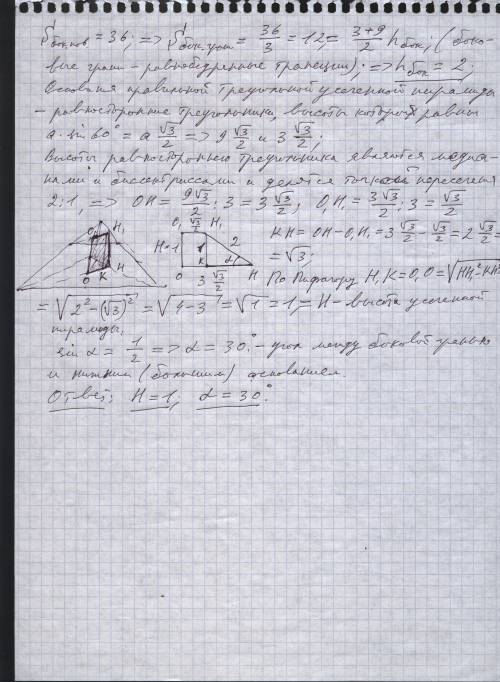 S бок.пов = 36; => S' бок.грани = 36/3 = 12 = (3+9)/2 h бок; (боко-
вые грани - равнобедренные трапеции); => h бок = 2;
Основания правильной треугольной усеченной пирамиды
- равносторонние треугольники, высоты которой равны
a·sin 60° = a √3/2 => 9 √3/2 и 3 √3/2;
Высоты равностороннего треугольника являются медиа-
нами и биссектриссами и делятся точкой пересечения
2:1, => OH = 9√3/2 : 3 = 3 √3/2; O₁H₁ = 3√3/2 : 3 = √3/2
KH = OH - O₁H₁ = 3 √3/2 - √3/2 = 2 √3/2
= √3;
По Пифагору H₁K = O₁O = √HH₁² - KH²
= √2² - (√3)² = √4-3 = √1 = 1, = H - высота усеченной
пирамиды.
sin α = 1/2 => α = 30° - угол между боковой гранью
и нижним (большим) основанием.
Ответ: H = 1, α = 30°
O₁ H₁
O K H
O₁ √3/2 H₁
H=1 1 2
K α
O 3 √3/2 H